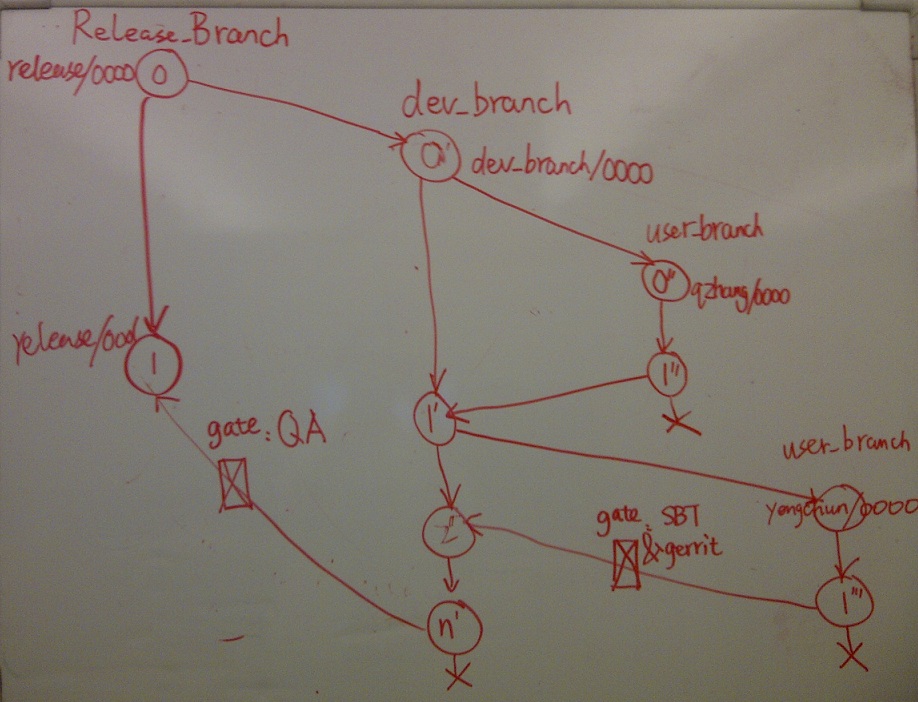 Release_Branch
release/0000
0
dev_branch
0'
dev_branch/0000
user_branch
0"
qzhang/0000
release/0001
1
1"'
1'
gate: QA
user_branch
yongchun/0000
gate: SBT
& gerrit
2'
1"'
n'